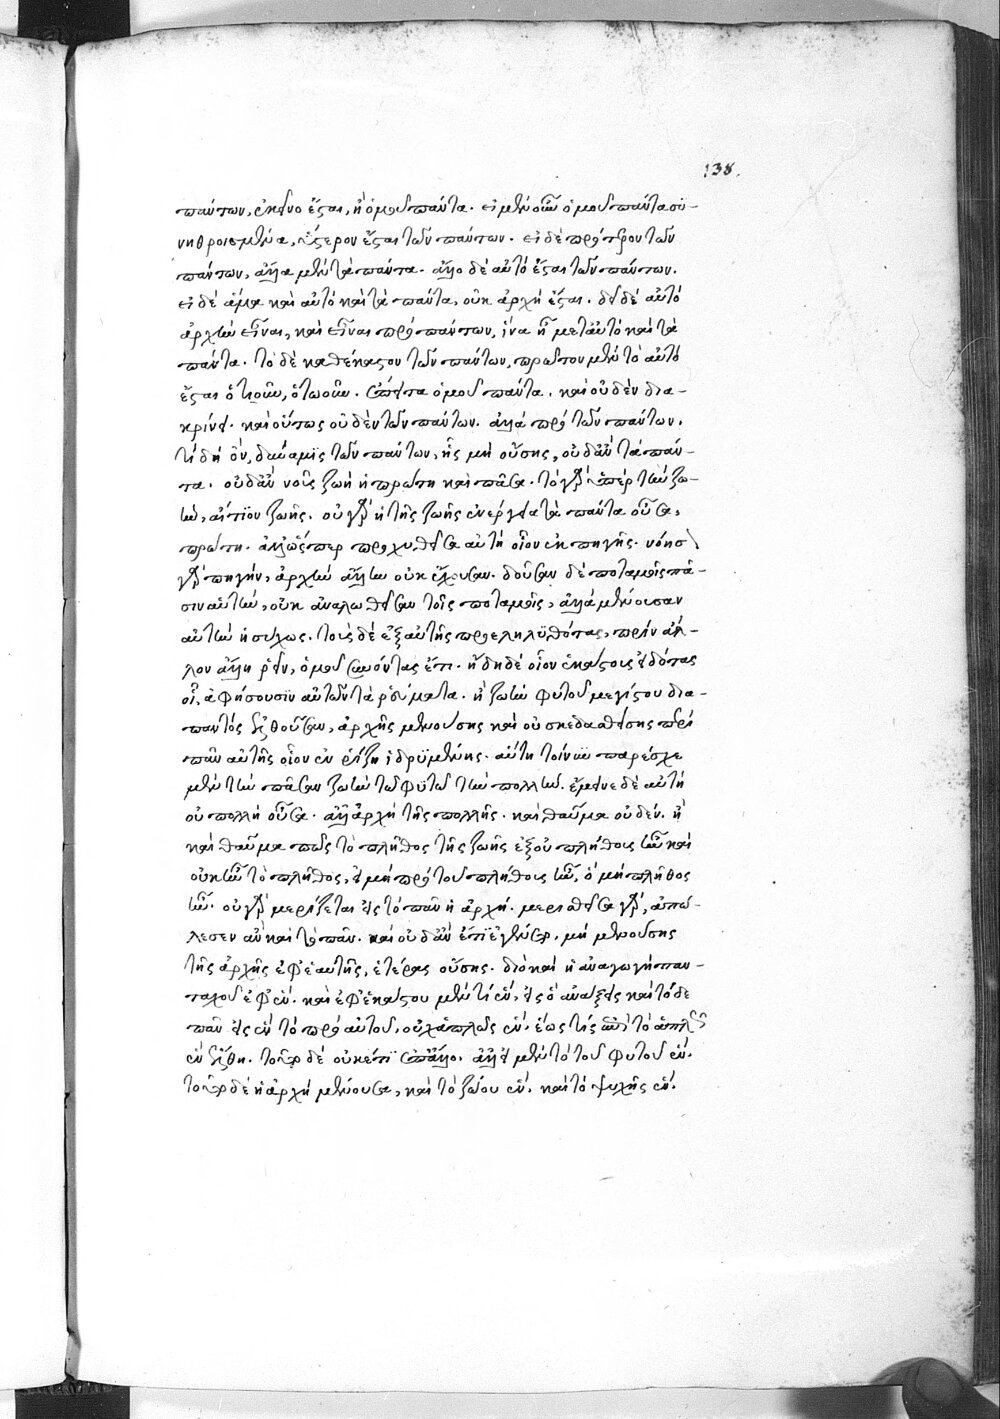 138.
πάντων, ἐκεῖνο ἔσται, ἢ ὁμοῦ πάντα. εἰ μὲν οὖν ὁμοῦ πάντα συ-
νηθροισμένα, ὕστερον ἔσται τῶν πάντων. εἰ δὲ πρότερον τῶν
πάντων, ἄλλα μὲν τὰ πάντα. ἄλλο δὲ αὐτὸ ἔσται τῶν πάντων.
εἰ δὲ ἅμα καὶ αὐτὸ καὶ τὰ πάντα, οὐκ ἀρχὴ ἔσται. δεῖ δὲ αὐτὸ
ἀρχὴν εἶναι, καὶ εἶναι πρὸ πάντων, ἵνα ᾖ μετ' αὐτὸ καὶ τὰ
πάντα. τὸ δὲ καθ' ἕκαστον τῶν πάντων, πρῶτον μὲν τὸ αὐτὸ
ἔσται ὁτιοῦν, ὁτωοῦν. ἔπειτα ὁμοῦ πάντα. καὶ οὐδὲν δια-
κρινεῖ. καὶ οὕτως οὐδὲν τῶν πάντων. ἀλλὰ πρὸ τῶν πάντων.
τί δὴ ὄν, δύναμις τῶν πάντων, ἧς μὴ οὔσης, οὐδ' ἂν τὰ πάν-
τα. οὐδ' ἂν νοῦς ζωὴ ἡ πρώτη καὶ πᾶσα. τὸ γὰρ ὑπὲρ τὴν ζω-
ήν, αἴτιον ζωῆς. οὐ γὰρ ἡ τῆς ζωῆς ἐνέργεια τὰ πάντα οὖσα,
πρώτη. ἀλλ' ὥσπερ προχυθεῖσα αὐτὴ οἷον ἐκ πηγῆς. νόησ
γὰρ πηγήν, ἀρχὴν ἄλλην οὐκ ἔχουσαν. δοῦσαν δὲ ποταμοῖς πᾶ-
σιν αὑτήν, οὐκ ἀναλωθεῖσαν τοῖς ποταμοῖς, ἀλλὰ μένουσαν
αὐτὴν ἡσύχως. τοὺς δὲ ἐξ αὐτῆς προεληλυθότας, πρὶν ἄλ-
λον ἄλλη ῥεῖν, ὁμοῦ συνόντας ἔτι. ἤδη δὲ οἷον ἑκάστους εἰδότας
οἷ, ἀφήσουσιν αὐτῶν τὰ ῥεύματα. ἢ ζωὴν φυτοῦ μεγίστου δια-
παντὸς ἐλθοῦσαν, ἀρχῆς μενούσης καὶ οὐ σκεδασθείσης περὶ
πᾶν αὐτῆς οἷον ἐν ῥίζη ἱδρυμένης. αὕτη τοίνυν παρέσχε
μὲν τὴν πᾶσαν ζωὴν τῶ φυτῶ τὴν πολλήν. ἔμεινε δὲ αὐτὴ
οὐ πολλὴ οὖσα. ἀλλ' ἀρχὴ τῆς πολλῆς. καὶ θαῦμα οὐδέν. ἢ
καὶ θαῦμα πῶς τὸ πλῆθος τῆς ζωῆς ἐξ οὐ πλήθους ἦν καὶ
οὐκ ἦν τὸ πλῆθος, εἰ μὴ πρὸ τοῦ πλήθους ἦν, ὃ μὴ πλῆθος
ἦν. οὐ γὰρ μερίζεται εἰς τὸ πᾶν ἡ ἀρχή. μερισθεῖσα γάρ, ἀπώ-
λεσεν ἂν καὶ τὸ πᾶν. καὶ οὐδ' ἂν ἔτι ἐγένετο, μὴ μενούσης
τῆς ἀρχῆς ἐφ' ἑαυτῆς, ἑτέρας οὔσης. διὸ καὶ ἡ ἀναγωγὴ παν-
ταχοῦ ἐφ' ἕν. καὶ ἐφ' ἑκάστου μέν τι ἕν, εἰς ὃ ἀνάξεις καὶ τόδε
πᾶν εἰς ἓν τὸ πρὸ αὐτοῦ, οὐχ ἁπλῶς ἕν. ἕως τις ἐπὶ τὸ ἁπλῶς
ἓν ἔλθη. τοῦτο δὲ οὐκέτι ἐπ' ἄλλο. ἀλλ' εἰ μὲν τὸ τοῦ φυτοῦ ἕν.
τοῦτο δὲ ἡ ἀρχὴ μένουσα, καὶ τὸ ζώου ἕν. καὶ τὸ ψυχῆς ἕν.